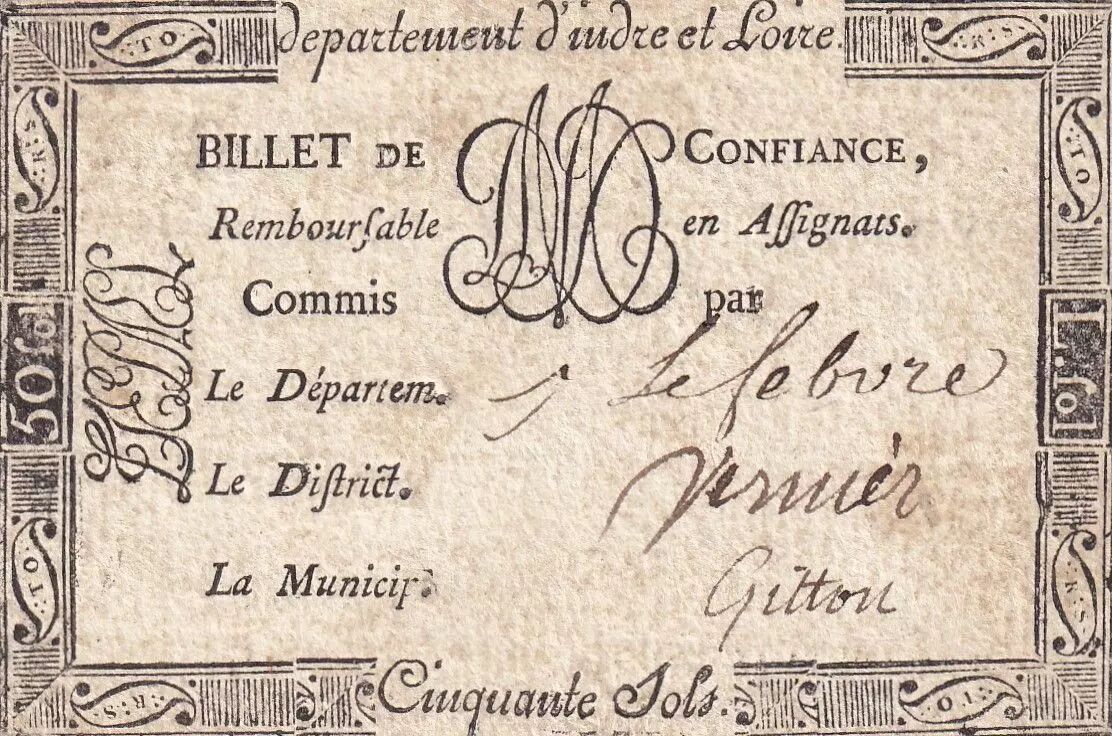 departement d'indre et Loire.
BILLET DE CONFIANCE,
Rembourſable en Aſſignats.
Commis par
Le Départem. Lefebvre
Le Diſtrict. Vernier
La Municip. Gitton
Cinquante Sols.
TO
R S
R S
TO
50 ſo
50 ſ
TO
R S
R S
TO